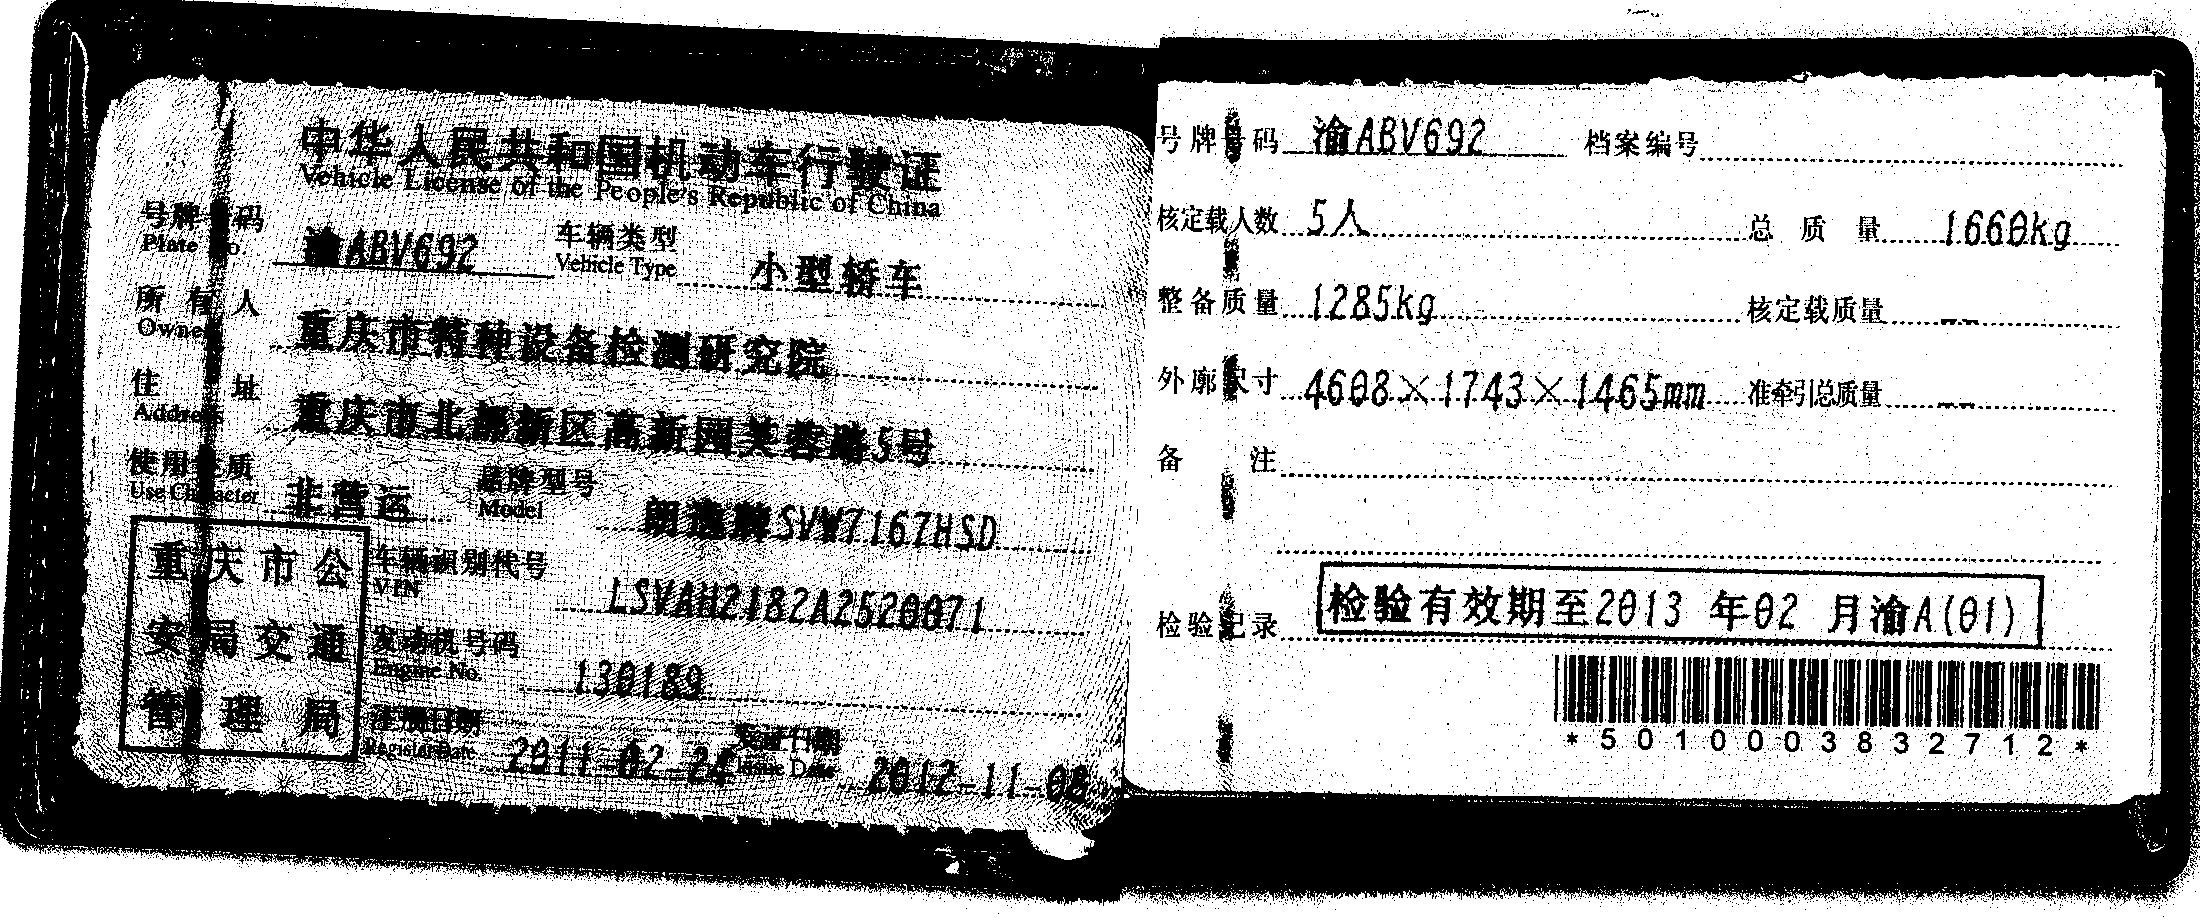 中华人民共和国机动车行驶证
Vehicle License of the People's Republic of China
号牌号码 渝ABV692 车辆类型 小型轿车
Plate No. Vehicle Type
所有人 重庆市特种设备检测研究院
Owner
住址 重庆市北部新区高新园芙蓉路5号
Address
使用性质 非营运 品牌型号 朗逸牌SVW7167HSD
Use Character Model
重庆市公
安局交通
管理局
车辆识别代号 LSVAH2182A2520071
VIN
发动机号码 130189
Engine No.
注册日期 2011-02-24 发证日期 2012-11-08
Register Date Issue Date
号牌号码 渝ABV692 档案编号
核定载人数 5人 总质量 1660kg
整备质量 1285kg 核定载质量 --
外廓尺寸 4608×1743×1465mm 准牵引总质量 --
备注
检验记录 检验有效期至2013 年02 月渝A(01)
*5010003832712*